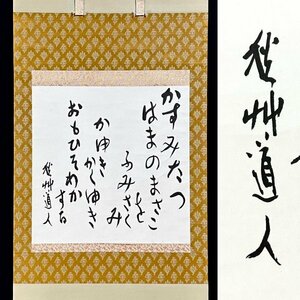 かすみたつ
はまのまさこ
を
ふみさく
み
かゆき
かくゆき
おもひそわか
する
秋艸道人
秋艸道人